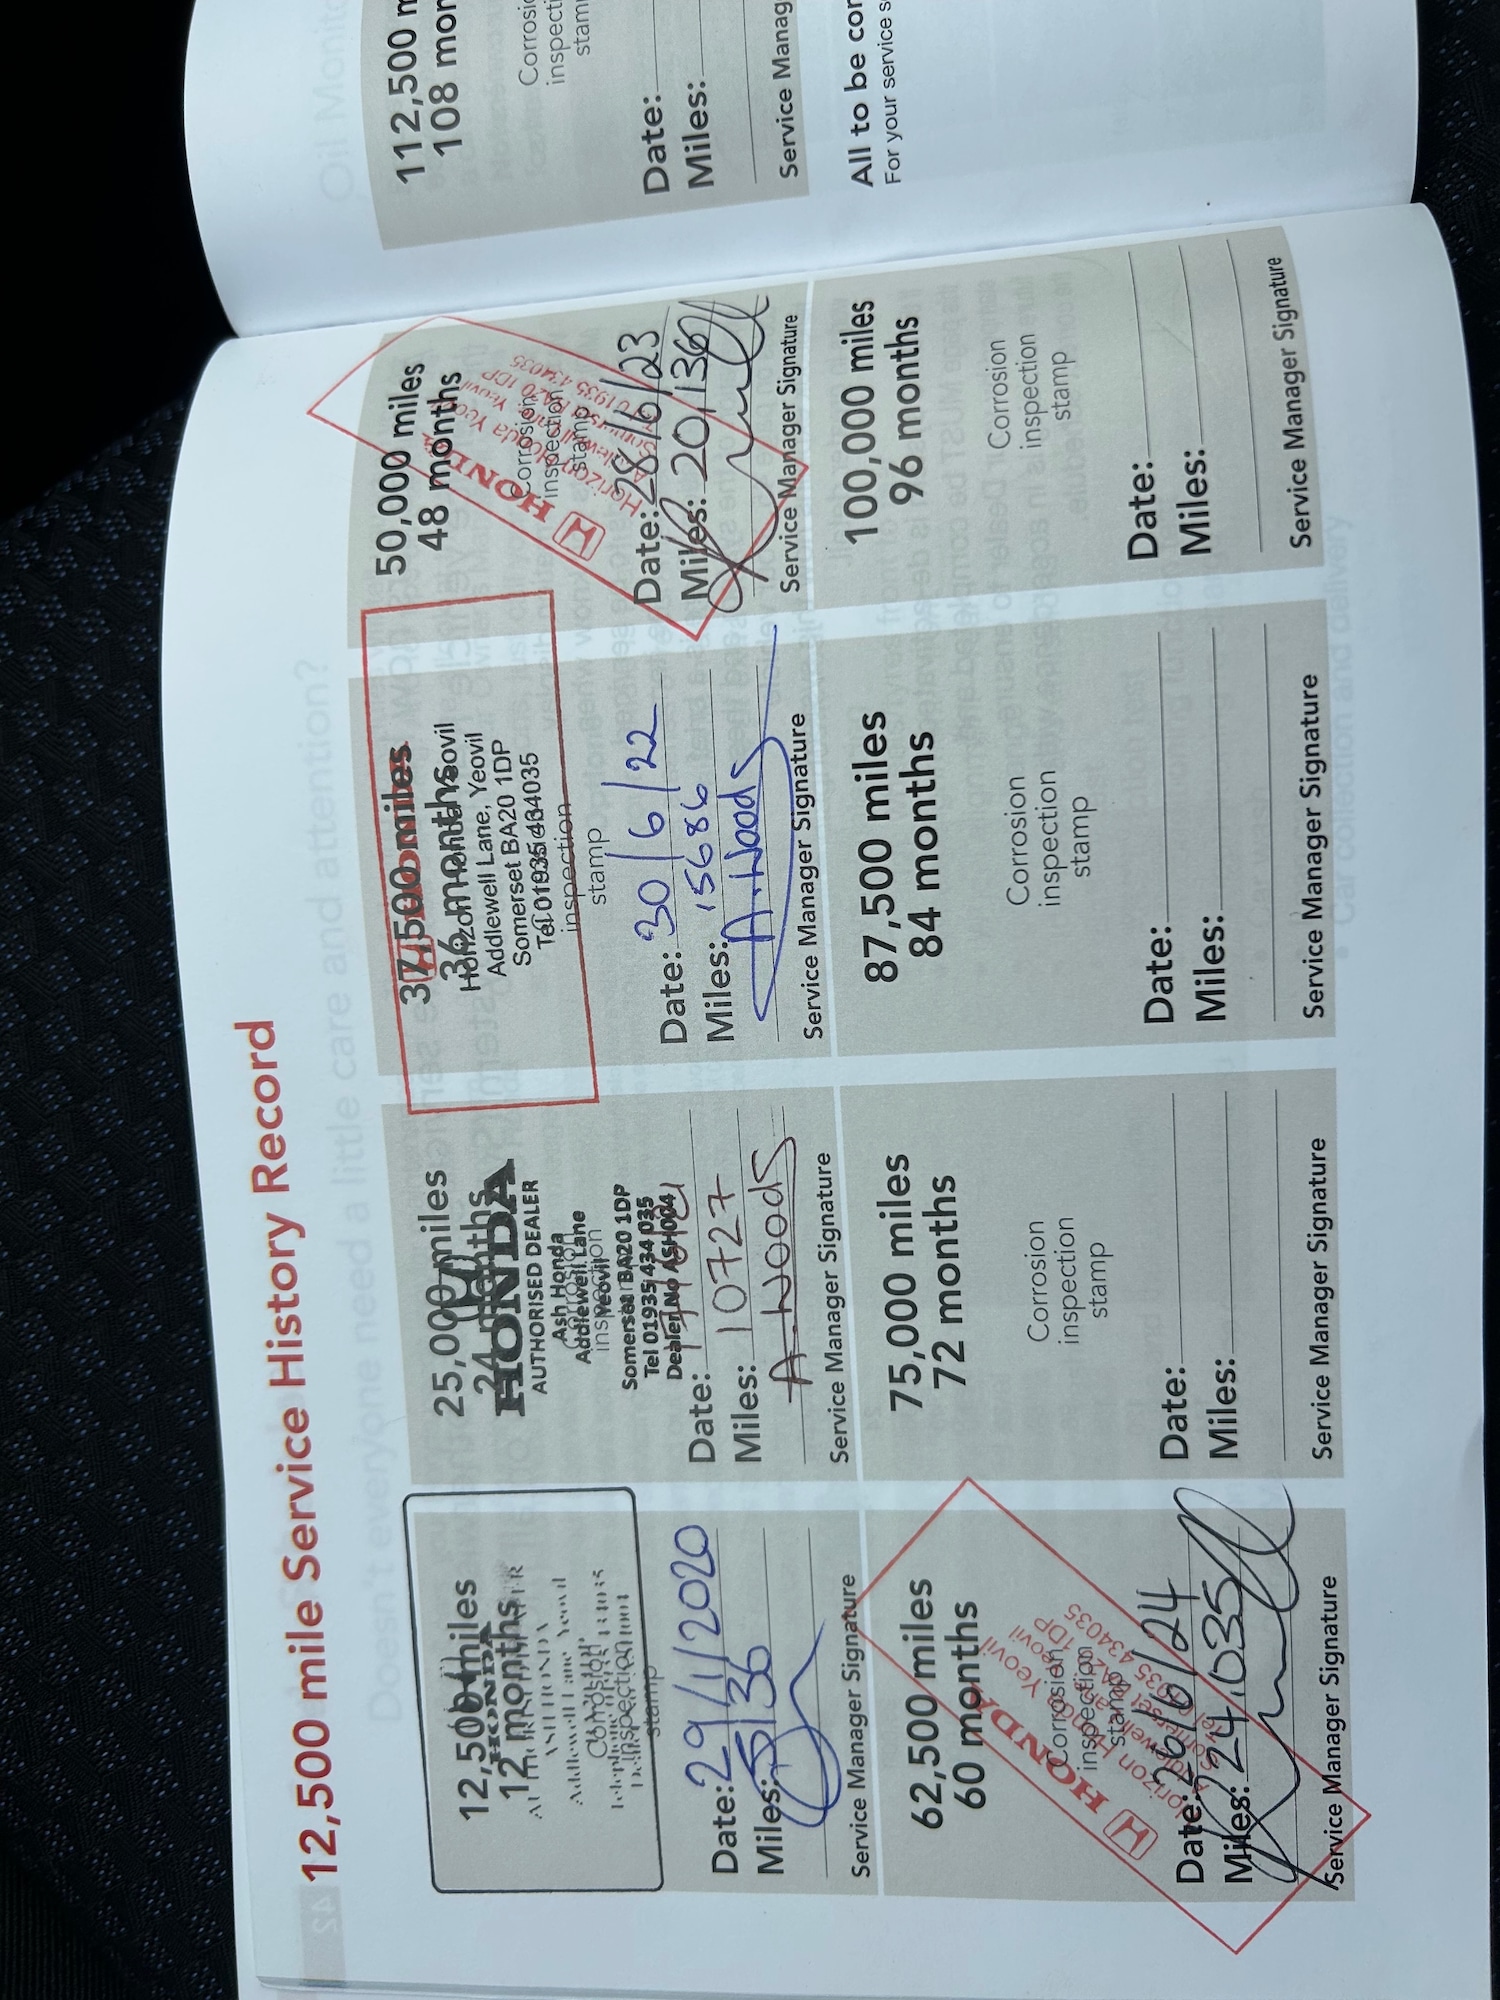 12,500 mile Service History Record
12,500 miles
12 months
HONDA
ASH HONDA
Addlewell Lane Yeovil
Corrosion
inspection
stamp
Date: 29/11/2020
Miles: 5136
Service Manager Signature
25,000 miles
24 months
HONDA
AUTHORISED DEALER
Ash Honda
Addlewell Lane
Yeovil
Corrosion
inspection
Somerset BA20 1DP
Tel 01935 434 035
Dealer No ASH004
Date:
Miles: 10727
A. Woods
Service Manager Signature
37,500 miles
36 months
HONDA
Horizon Honda Yeovil
Addlewell Lane, Yeovil
Somerset BA20 1DP
Tel 01935 434035
inspection
stamp
Date: 30/6/22
Miles: 15686
A. Woods
Service Manager Signature
50,000 miles
48 months
HONDA
Horizon Honda Yeovil
Addlewell Lane, Yeovil
Somerset BA20 1DP
01935 434035
Corrosion
inspection
stamp
Date: 28/6/23
Miles: 20,136
Service Manager Signature
62,500 miles
60 months
HONDA
Horizon Honda Yeovil
Addlewell Lane, Yeovil
Somerset BA20 1DP
Tel 01935 434035
Corrosion
inspection
stamp
Date: 26/6/24
Miles: 24,035
Service Manager Signature
75,000 miles
72 months
Corrosion
inspection
stamp
Date:
Miles:
Service Manager Signature
87,500 miles
84 months
Corrosion
inspection
stamp
Date:
Miles:
Service Manager Signature
100,000 miles
96 months
Corrosion
inspection
stamp
Date:
Miles:
Service Manager Signature
112,500
108
Date:
Miles:
Service
All to be
For your service